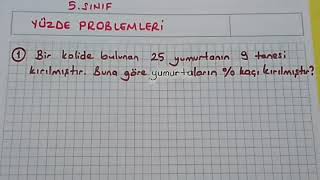 5. SINIF
YÜZDE PROBLEMLERİ
1 Bir kolide bulunan 25 yumurtanın 9 tanesi
kırılmıştır. Buna göre yumurtaların % kaçı kırılmıştır?